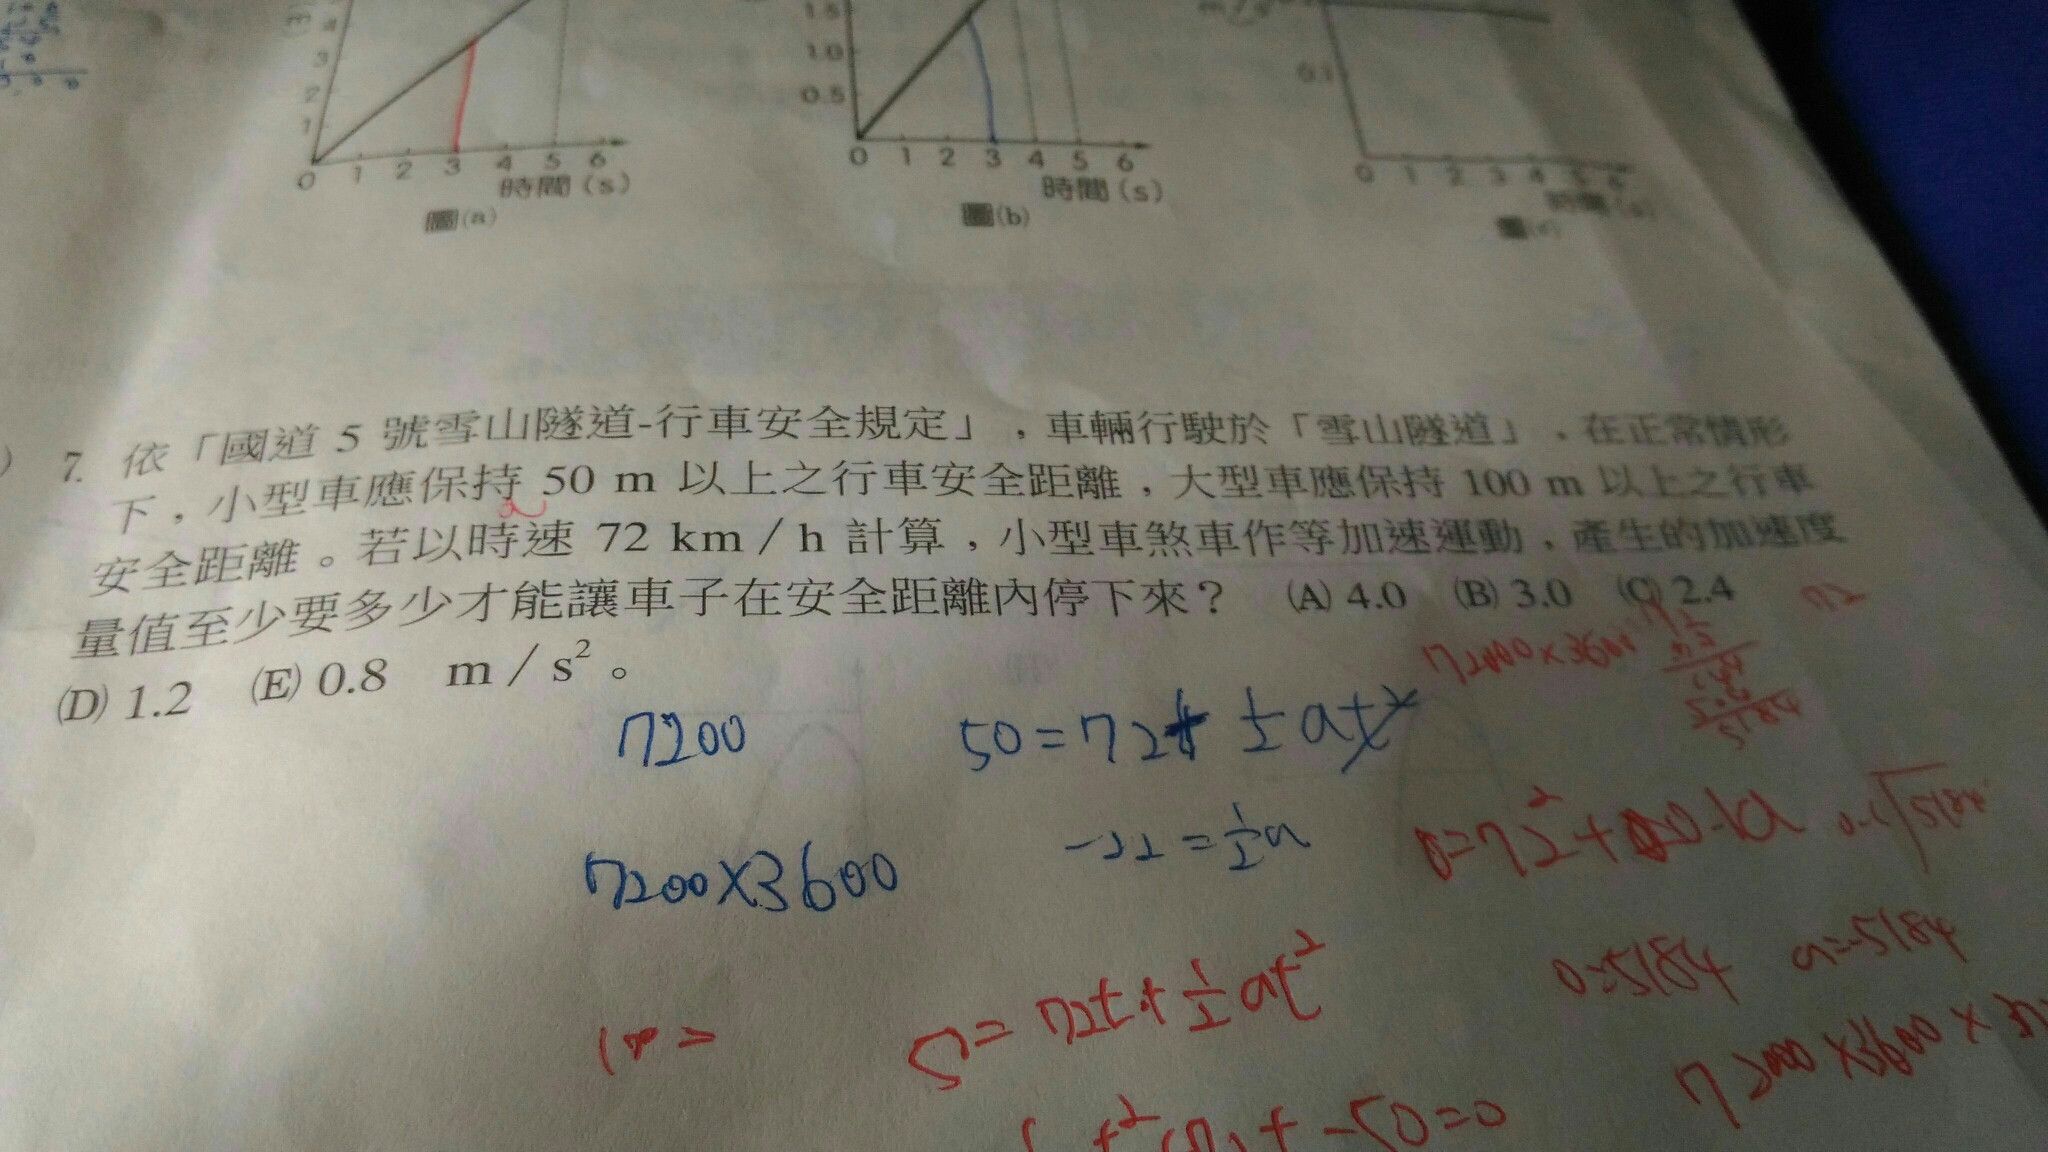 4
3
2
1
0 1 2 3 4 5 6
時間(s)
圖(a)
1.5
1.0
0.5
0 1 2 3 4 5 6
時間(s)
圖(b)
0.1
0 1 2 3 4 5 6
時間(s)
7. 依「國道 5 號雪山隧道-行車安全規定」，車輛行駛於「雪山隧道」，在正常情形
下，小型車應保持 50 m 以上之行車安全距離，大型車應保持 100 m 以上之行車
安全距離。若以時速 72 km/h 計算，小型車煞車作等加速運動，產生的加速度
量值至少要多少才能讓車子在安全距離內停下來？ (A) 4.0 (B) 3.0 (C) 2.4
(D) 1.2 (E) 0.8 m/s²。
72
72000×3600
7200
50=72t ½at²
7200×3600
-22=½a
5184
0=5184 a=-5184
S=72t+½at²
72000×3600×
t-50=0